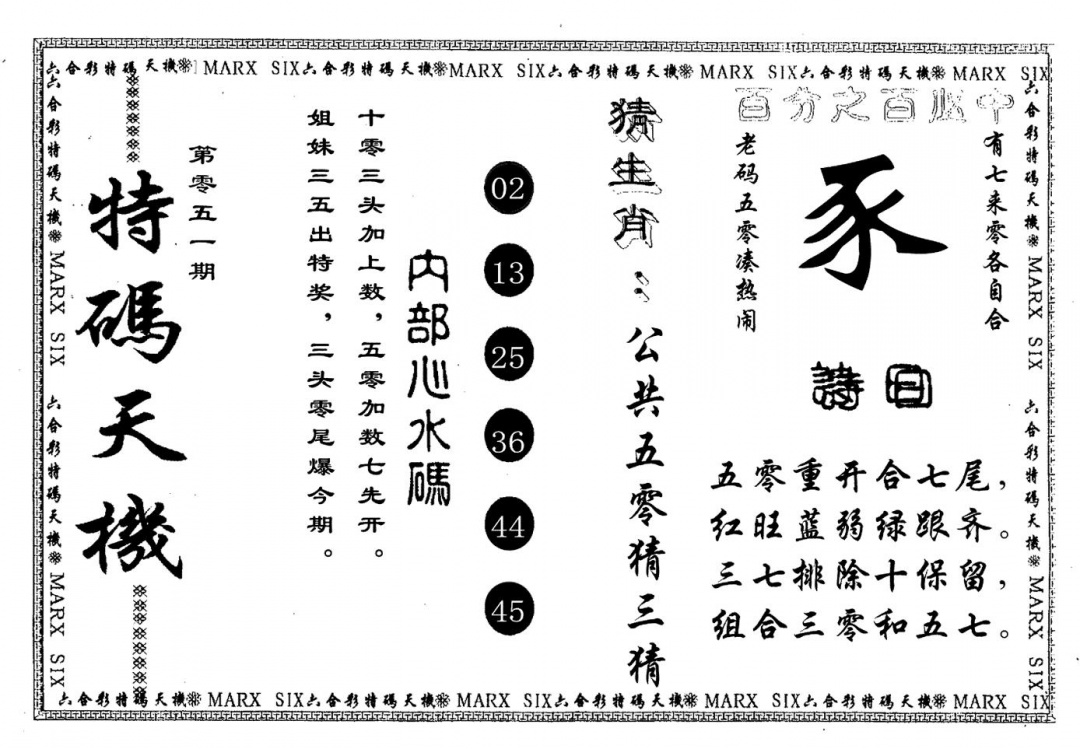 六合彩特碼天機 MARX SIX六合彩特碼天機MARX SIX六合彩特碼天機 MARX SIX六合彩特碼天機 MARX SIX
六合彩特碼天機 MARX SIX 六合彩特碼天機 MARX SIX
特碼天機
第零五一期
姐妹三五出特奖，三头零尾爆今期。
十零三头加上数，五零加数七先开。
内部心水碼
02
13
25
36
44
45
猜生肖：公共五零猜三猜
百分之百必中
老码五零凑热闹
豕
有七来零各自合
詩曰
五零重开合七尾，
红旺蓝弱绿跟齐。
三七排除十保留，
组合三零和五七。
六合彩特碼天機 MARX SIX 六合彩特碼天機 MARX SIX
六合彩特碼天機 MARX SIX六合彩特碼天機 MARX SIX六合彩特碼天機 MARX SIX六合彩特碼天機 MARX SIX